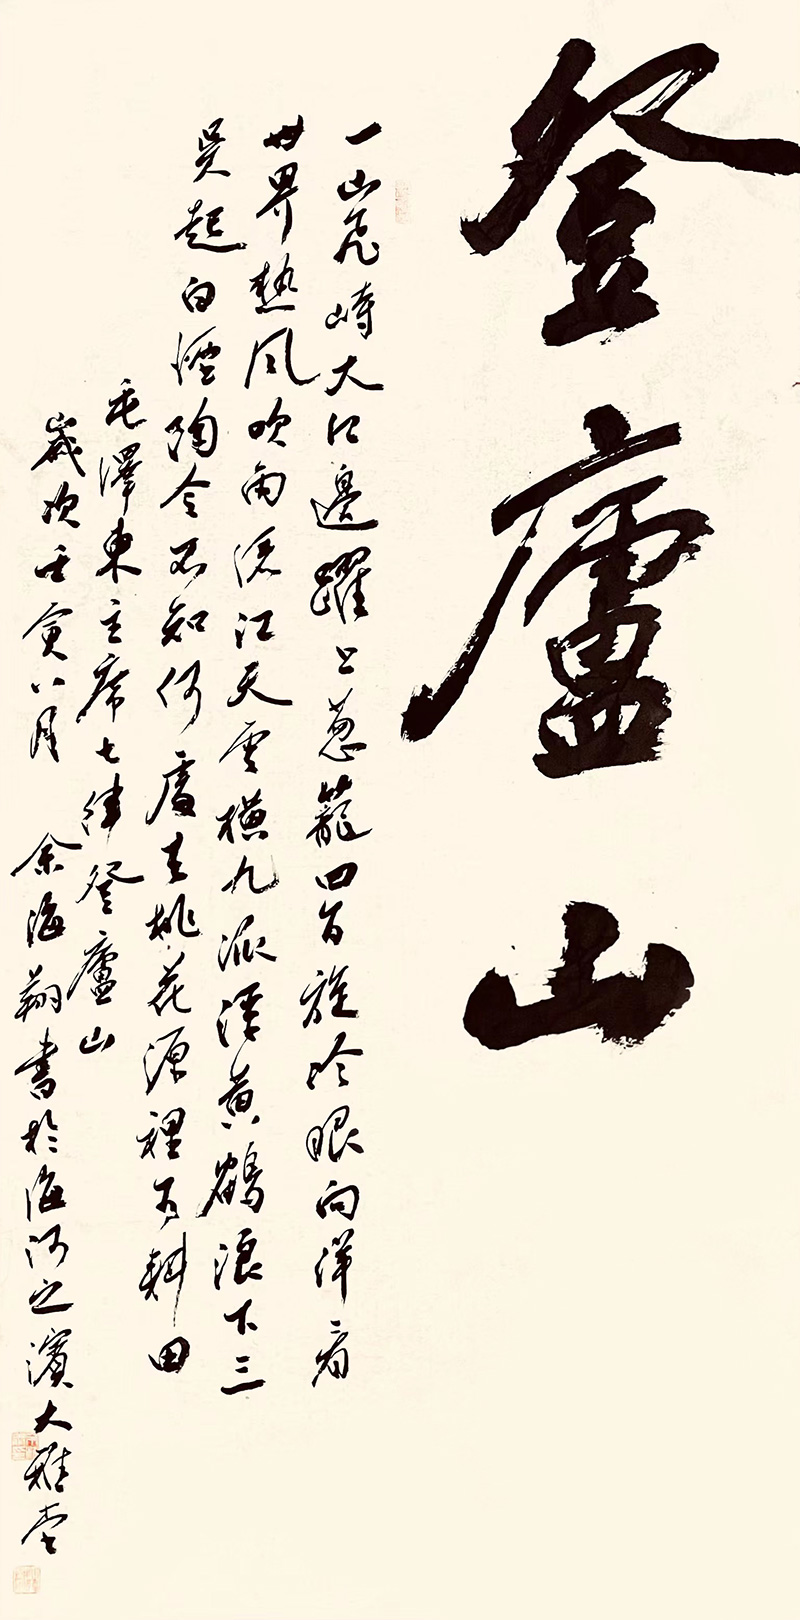 登廬山
一山飛峙大江邊躍上葱籠四百旋冷眼向洋看
世界熱風吹雨洒江天雲橫九派浮黃鶴浪下三
吳起白煙陶令不知何處去桃花源裡可耕田
毛澤東主席七律登廬山
歲次壬寅八月 余海翔書於海河之濱大雅堂